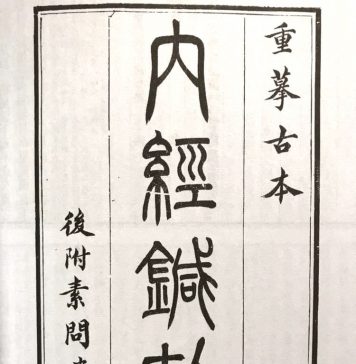 重摹古本
內經鍼
後附素問